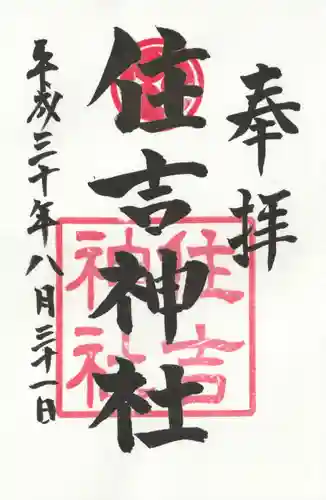 奉拝
住吉神社
平成三十年八月三十一日
住吉
神社